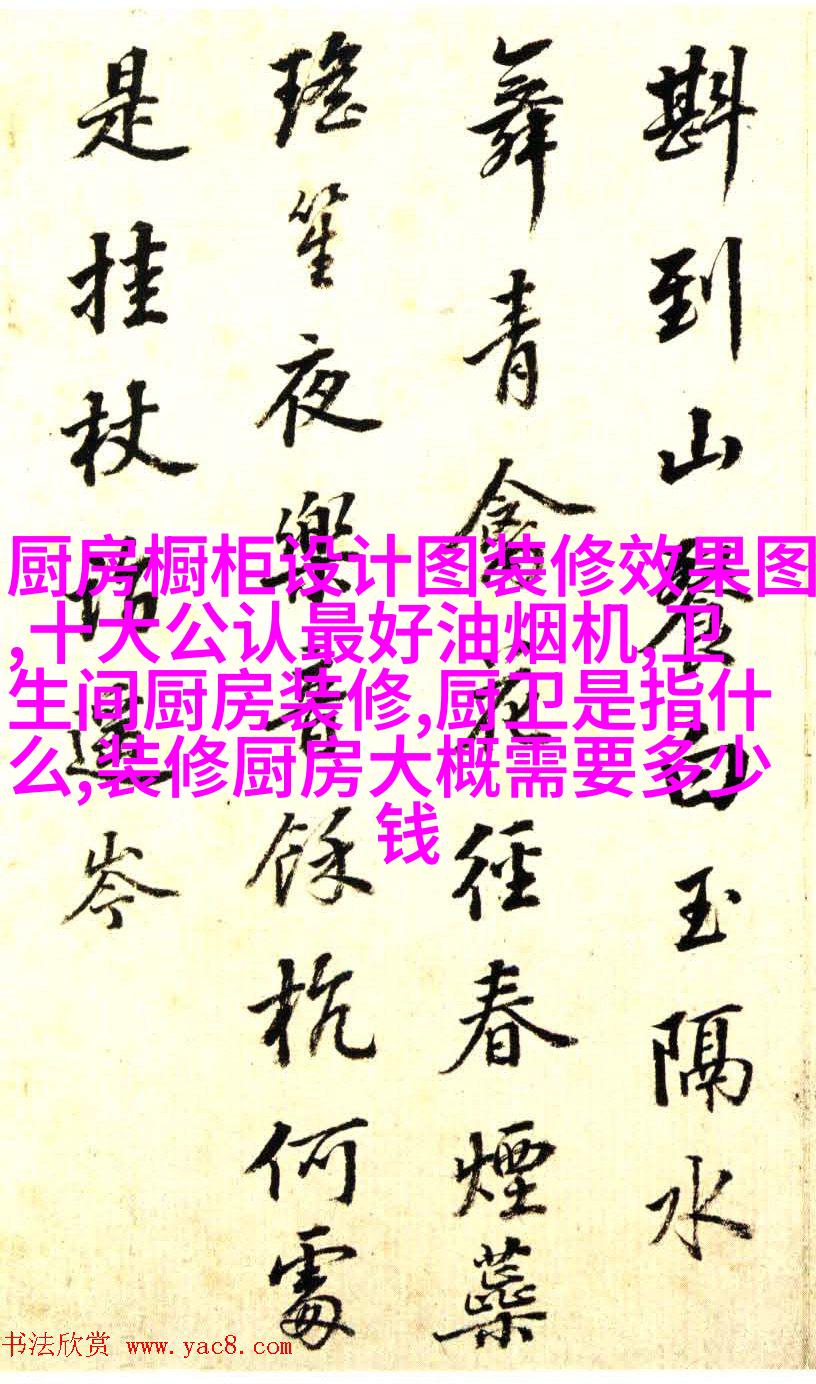 斟到山白玉隔水
舞青禽花徑春煙蘂
瑤笙夜樂音餘杭何處
是挂杖還岑
厨房橱柜设计图装修效果图
,十大公认最好油烟机,卫
生间厨房装修,厨卫是指什
么,装修厨房大概需要多少
钱
书法欣赏 www.yac8.com